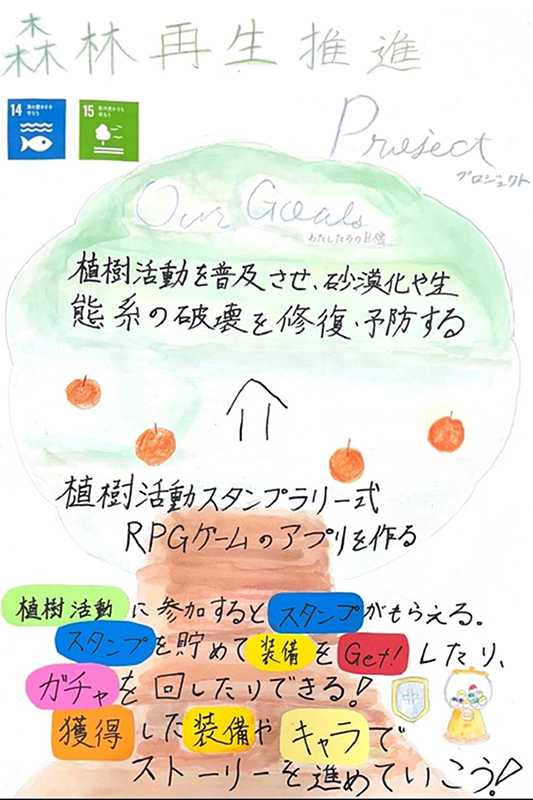 森林再生推進
14 海の豊かさを
守ろう
15 陸の豊かさも
守ろう
Project
プロジェクト
Our Goals
わたしたちの目標
植樹活動を普及させ、砂漠化や生
態系の破壊を修復・予防する
植樹活動スタンプラリー式
RPGゲームのアプリを作る
植樹活動に参加するとスタンプがもらえる。
スタンプを貯めて装備をGet!したり、
ガチャを回したりできる!
獲得した装備やキャラで
ストーリーを進めていこう!